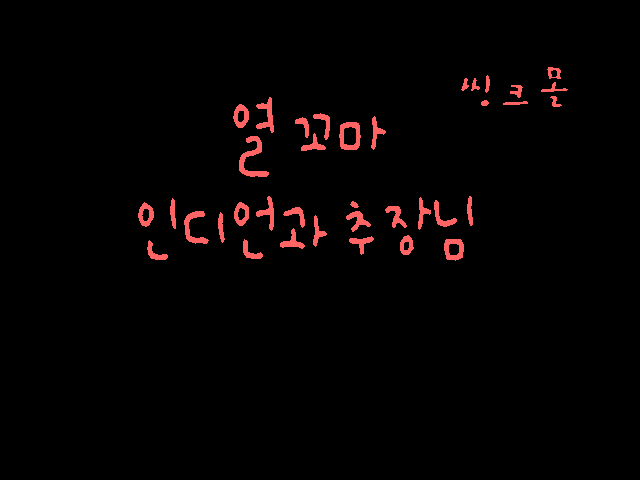 씽크몰
열 꼬마
인디언과 추장님